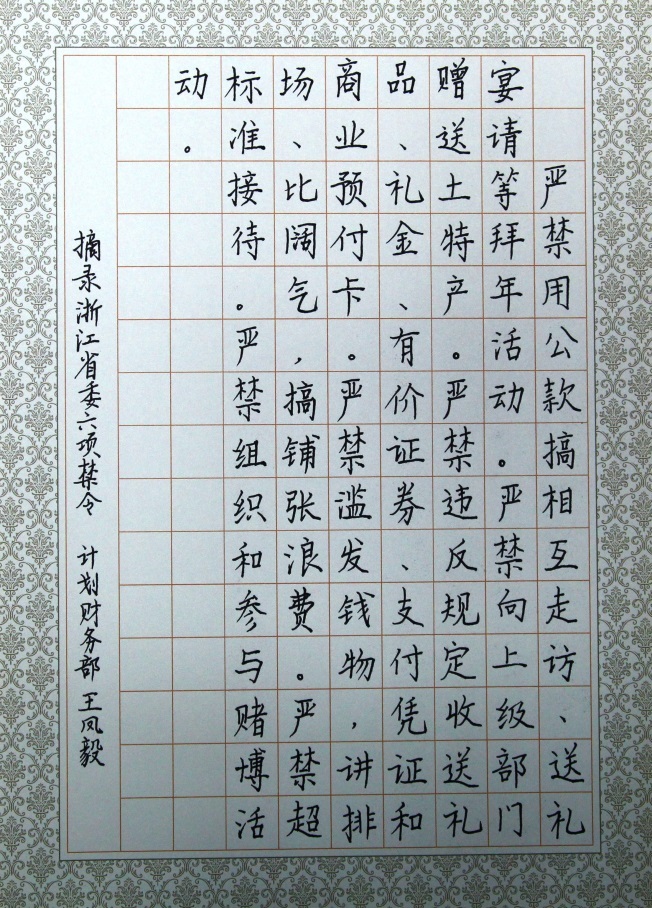 严禁用公款搞相互走访、送礼
宴请等拜年活动。严禁向上级部门
赠送土特产。严禁违反规定收送礼
品、礼金、有价证券、支付凭证和
商业预付卡。严禁滥发钱物，讲排
场、比阔气，搞铺张浪费。严禁超
标准接待。严禁组织和参与赌博活
动。
摘录浙江省委六项禁令 计划财务部 王凤毅